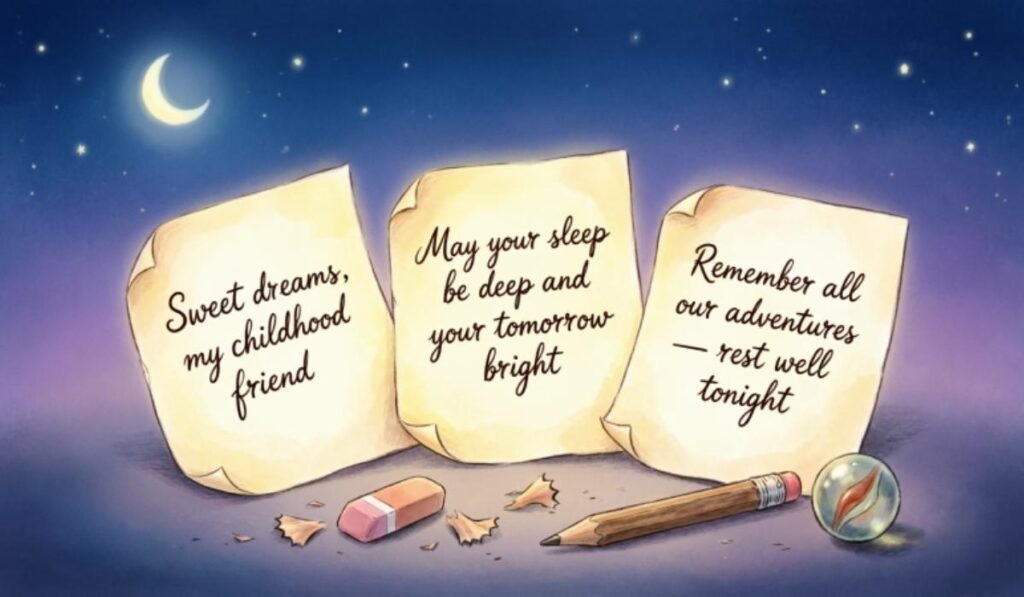 Sweet dreams,
my childhood
friend
May your sleep
be deep and
your tomorrow
bright
Remember all
our adventures
— rest well
tonight